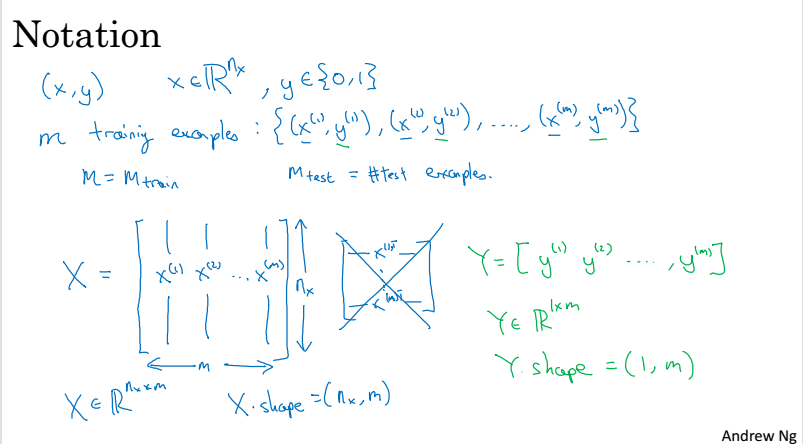 Notation
(x,y) x∈ℝ^{n_x}, y∈{0,1}
m training examples : {(x^{(1)}, y^{(1)}), (x^{(2)}, y^{(2)}), ...., (x^{(m)}, y^{(m)})}
M = M_train M_test = #test examples.
X = [x^{(1)} x^{(2)} ... x^{(m)}] n_x
m
x^{(1)T}
x^{(m)T}
Y = [y^{(1)} y^{(2)} ...., y^{(m)}]
Y ∈ ℝ^{1×m}
Y.shape = (1, m)
X ∈ ℝ^{n_x×m} X.shape = (n_x, m)
Andrew Ng